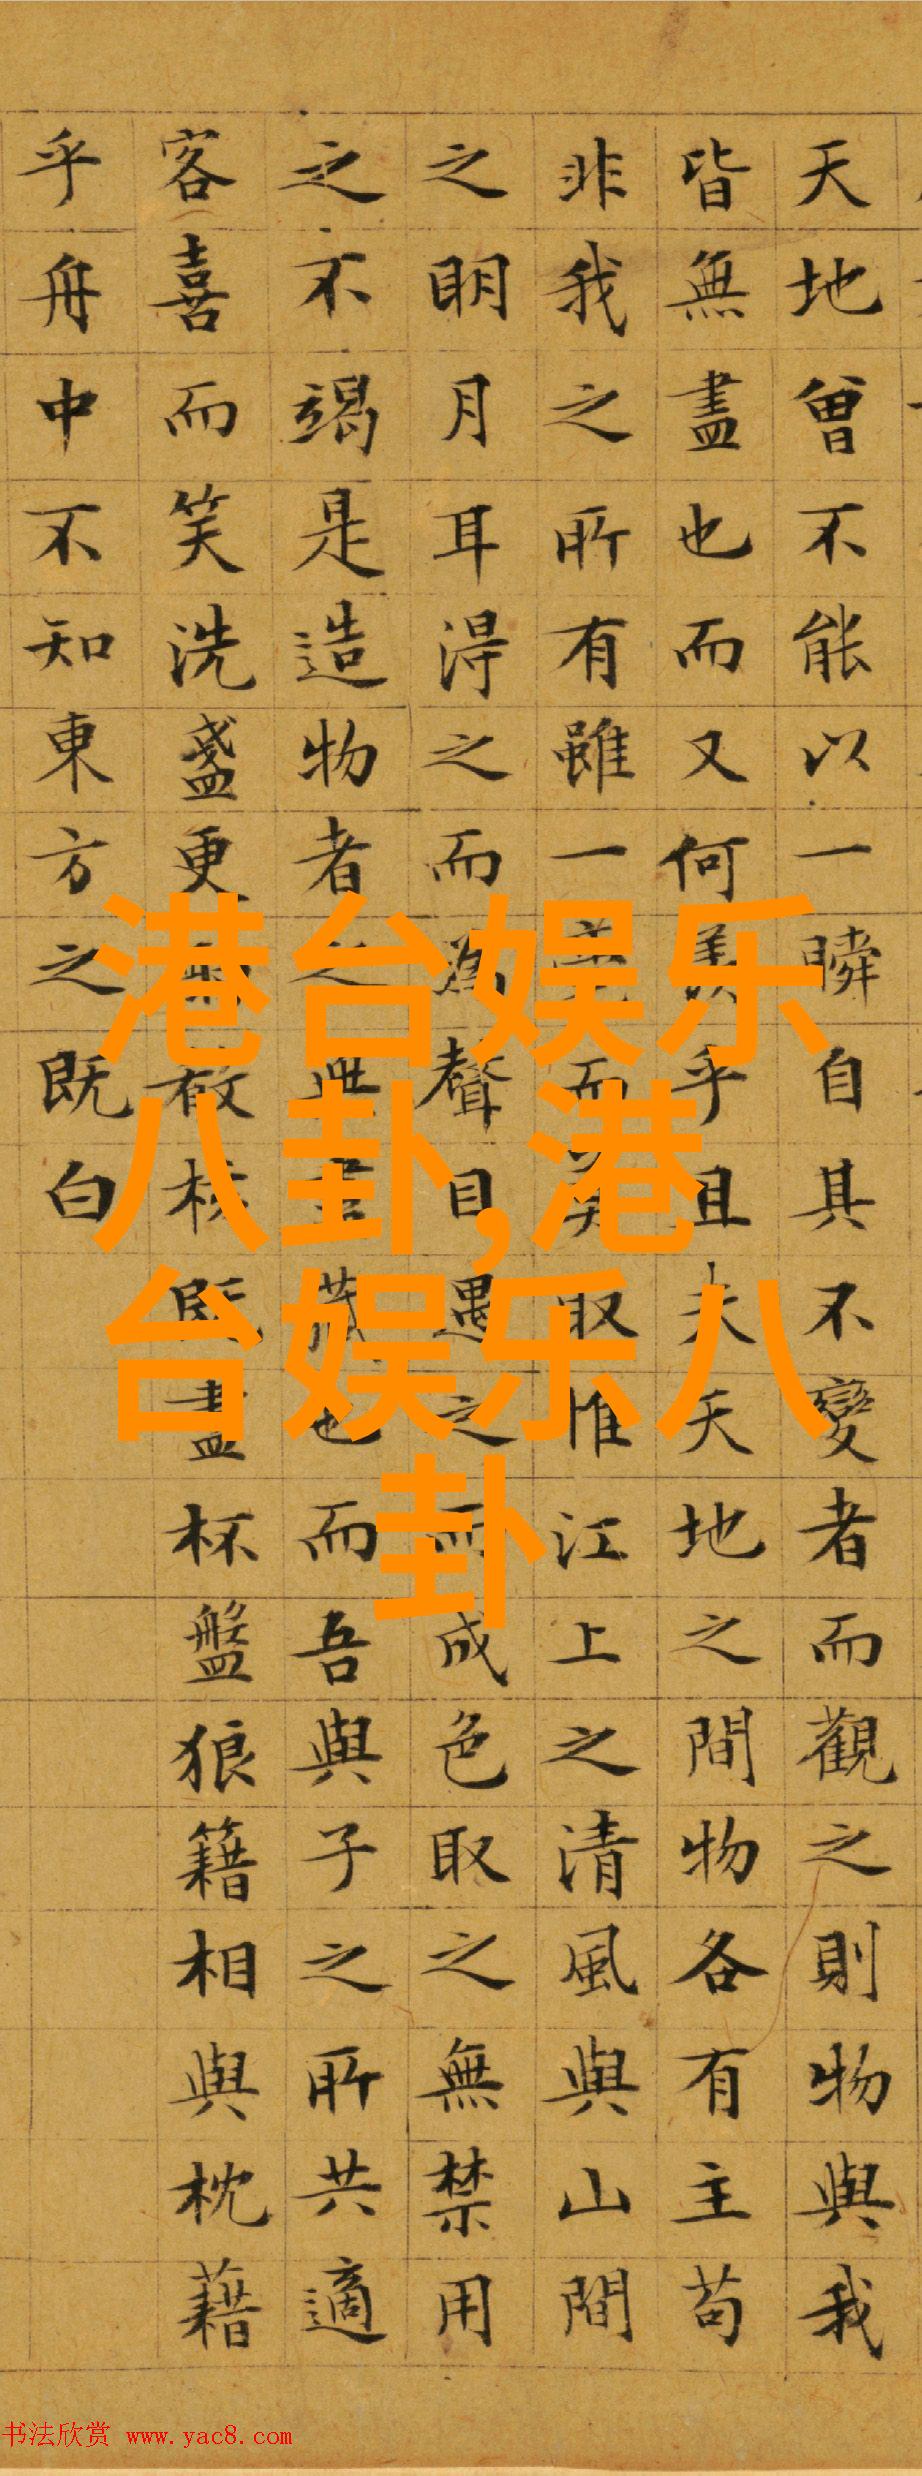 天地曾不能以一瞬自其不變者而觀之則物與我
皆無盡也而又何羨乎且夫天地之間物各有主苟
非我之所有雖一毫而莫取惟江上之清風與山間
之明月耳得之而為聲目遇之而成色取之無禁用
之不竭是造物者之無盡藏也而吾與子之所共適
客喜而笑洗盞更肴核既盡杯盤狼籍相與枕藉
乎舟中不知東方之既白
港台娱乐
八卦,港
台娱乐八
卦
书法欣赏 www.yac8.com